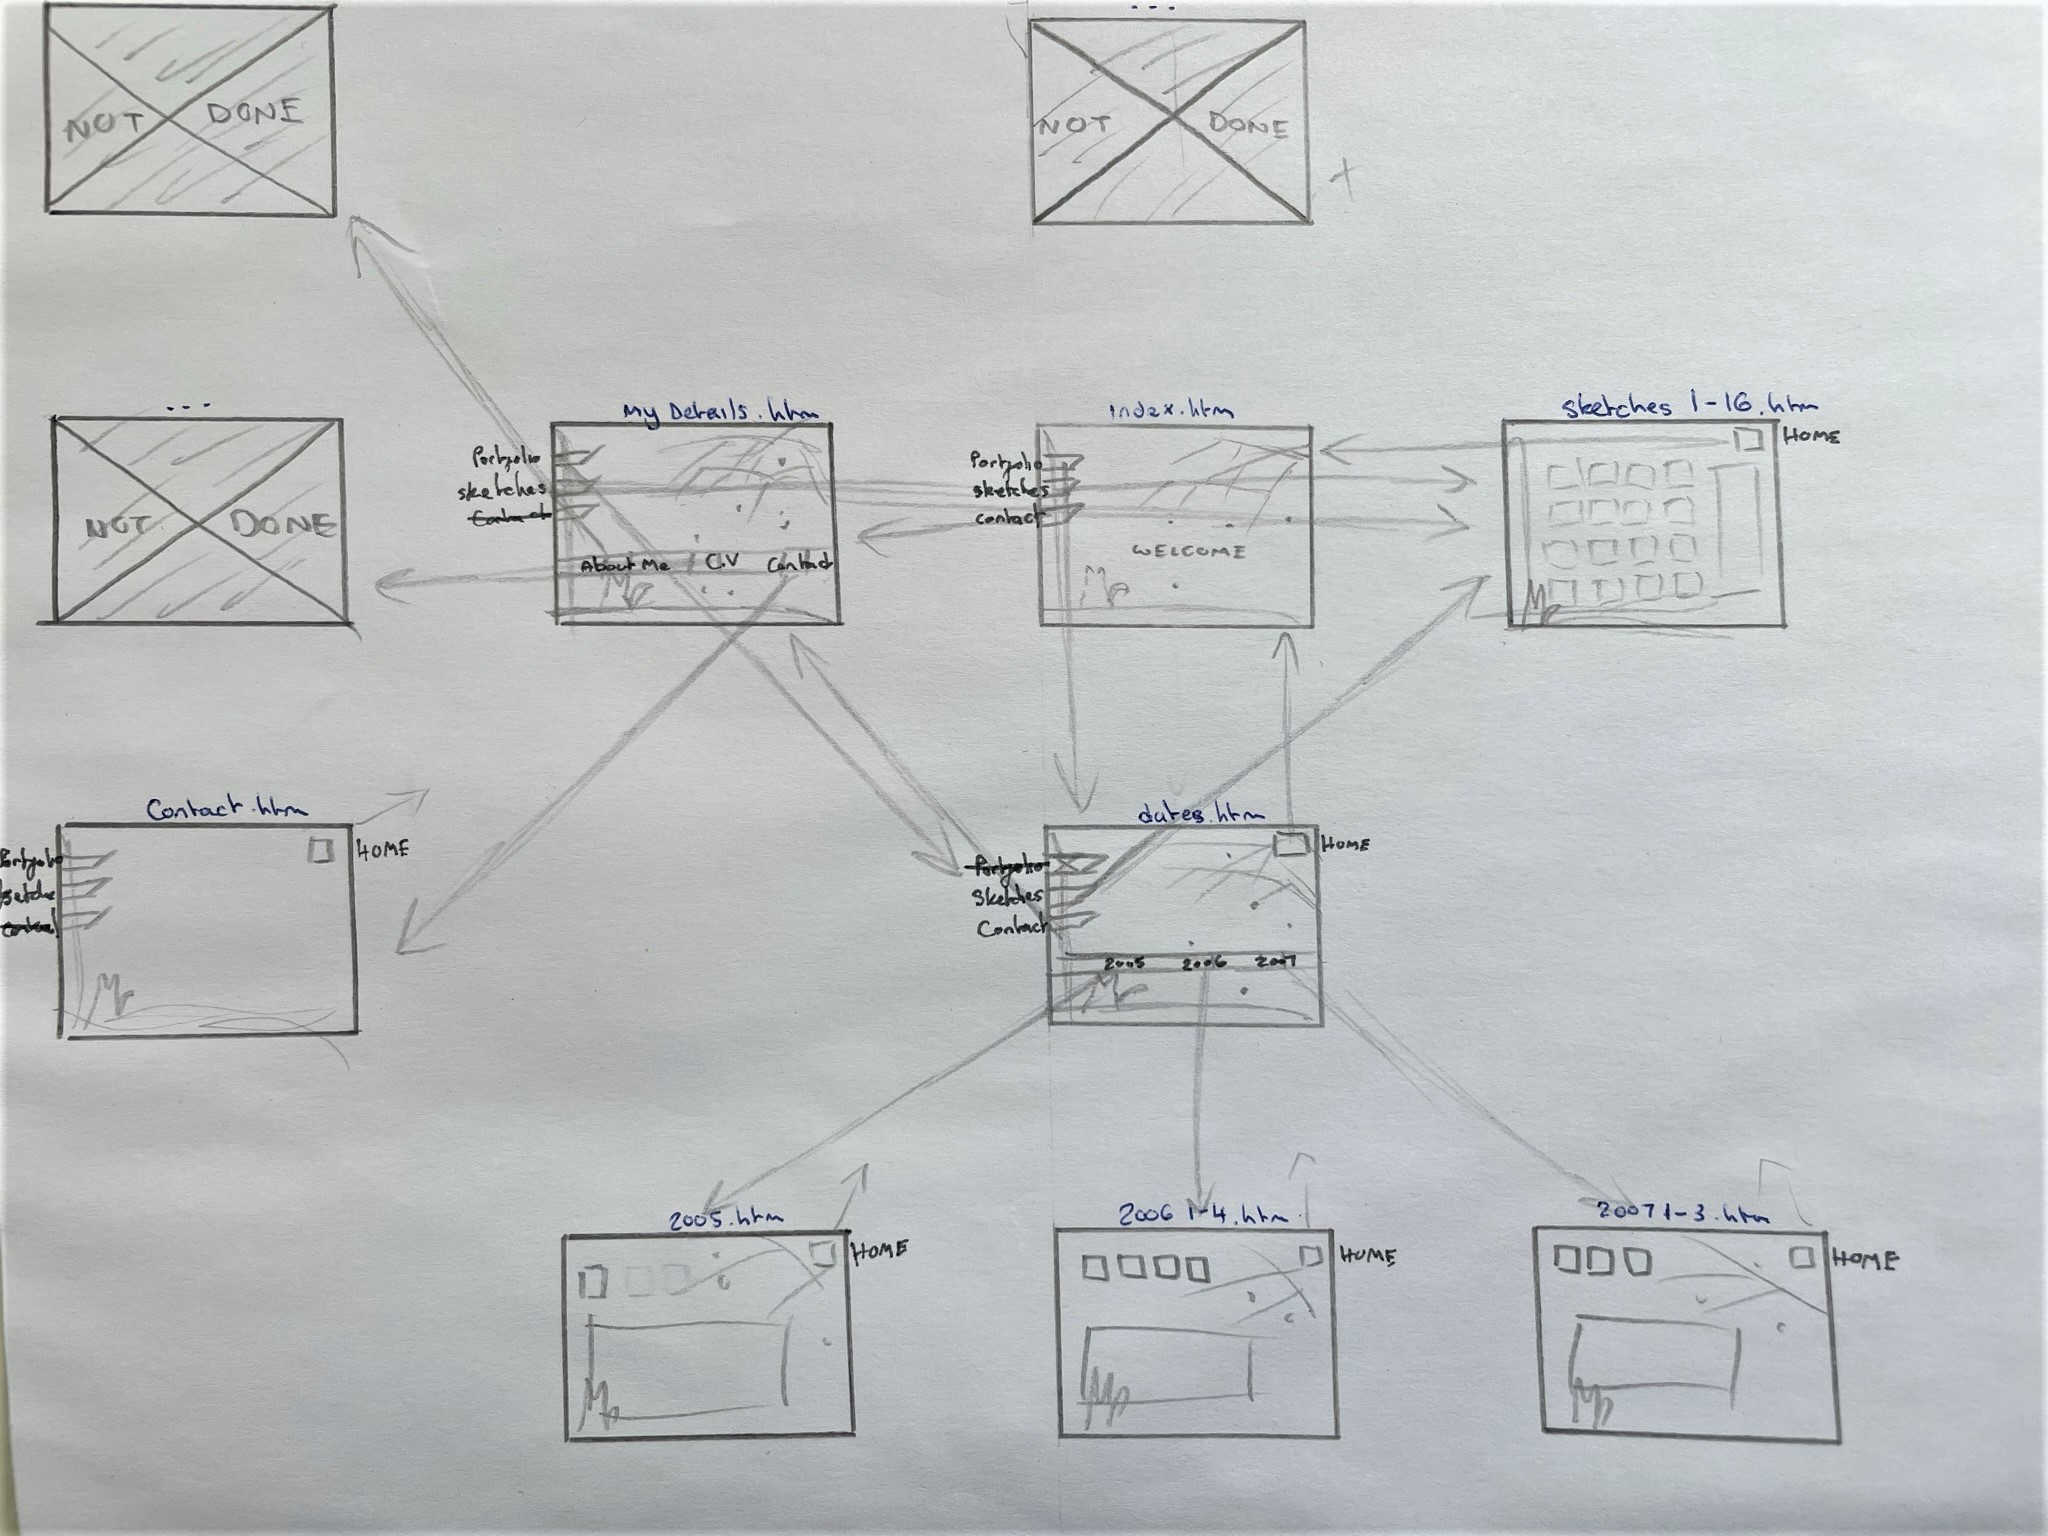 ...
NOT DONE
NOT DONE
...
NOT DONE
My Details.htm
Portfolio
sketches
Contact
About Me
C.V
Contact
index.htm
Portfolio
sketches
contact
WELCOME
sketches 1-16.htm
HOME
Contact.htm
HOME
Portfolio
Contact
dates.htm
HOME
Portfolio
Sketches
Contact
2005 2006 2007
2005.htm
HOME
2006 1-4.htm
HOME
2007 1-3.htm
HOME